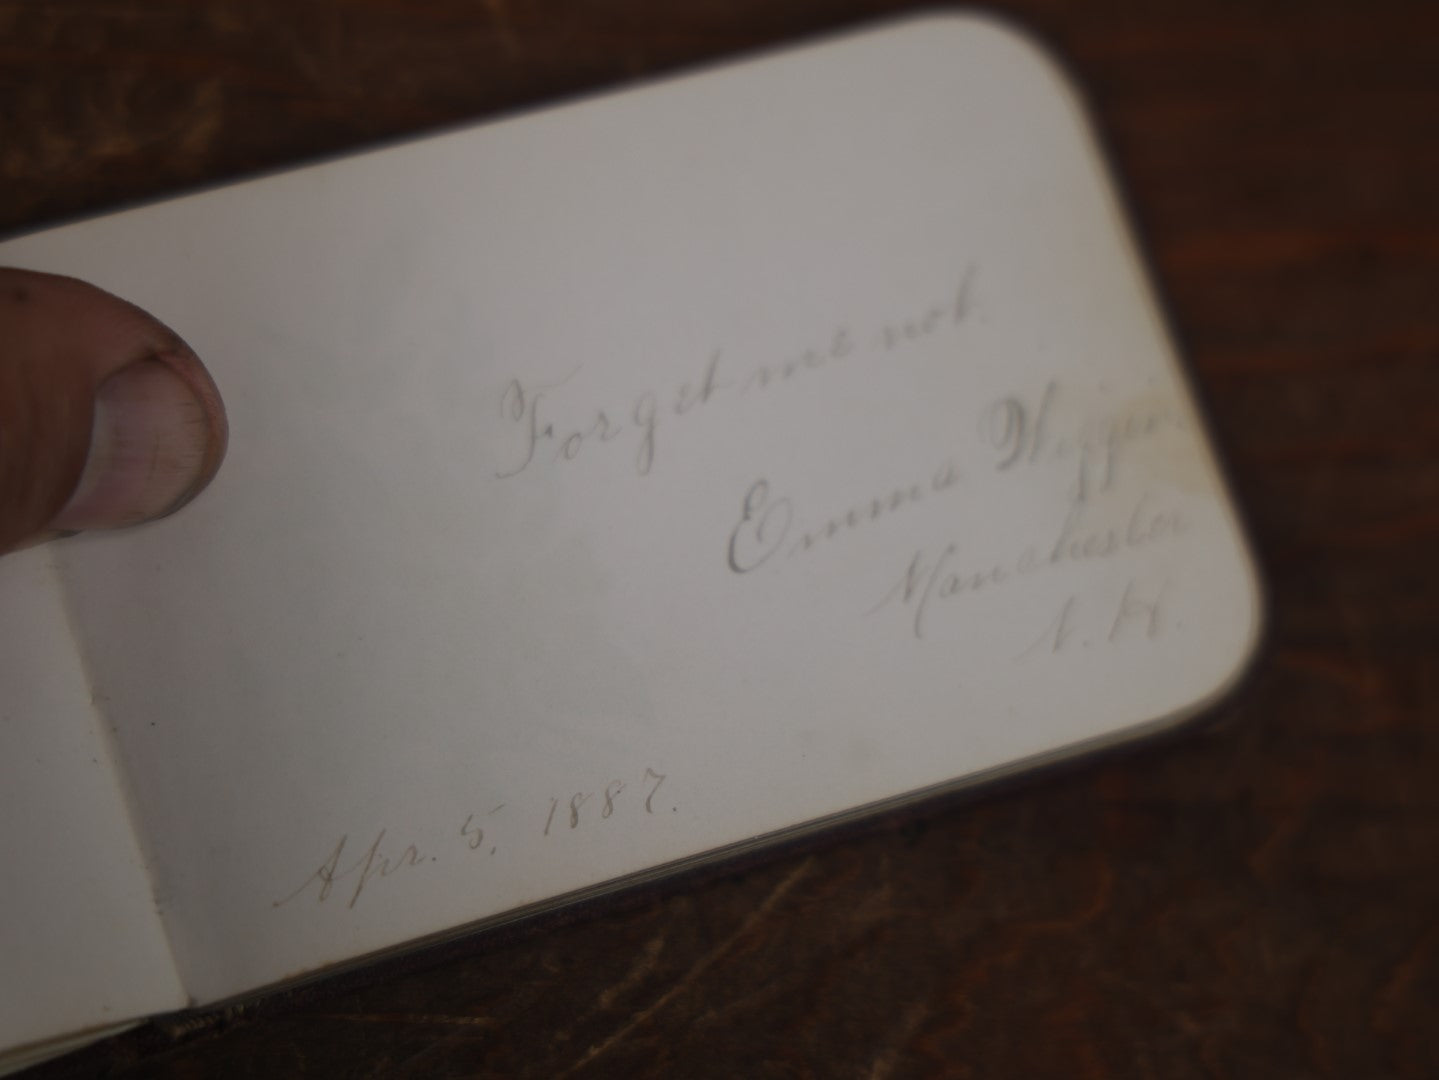 Forget me not.
Emma Wiggin.
Manchester
N. H.
Apr. 5, 1887.